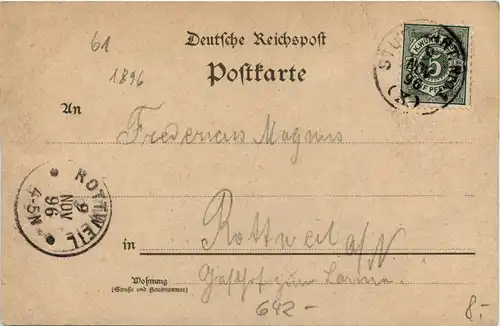 61
1896
Deutsche Reichspost
Postkarte
K. WÜRTT. POST
5
NOV
96
An Fredericus Magnus
ROTTWEIL
9
NOV
96
4-5N
in Rottweil a/N
Wohnung Gasthof zum Lamm.
(Straße und Hausnummer)
642-
8.-